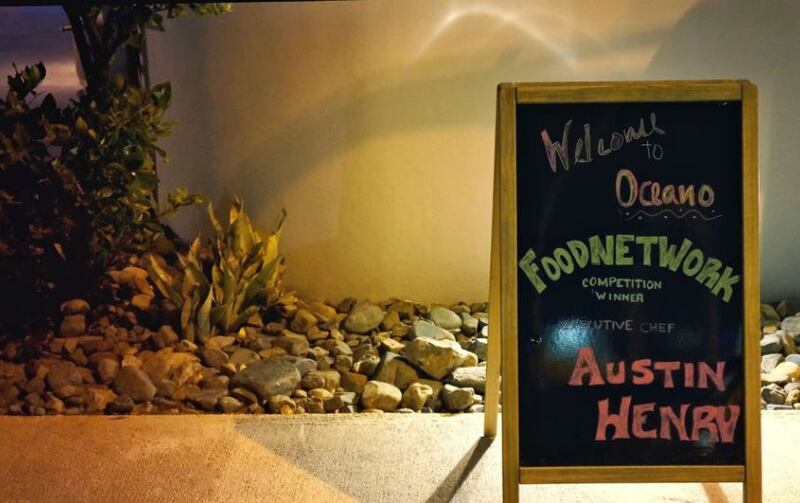 Welcome
TO
Oceano
FOODNETWORK
COMPETITION
WINNER
EXECUTIVE CHEF
AUSTIN
HENRY